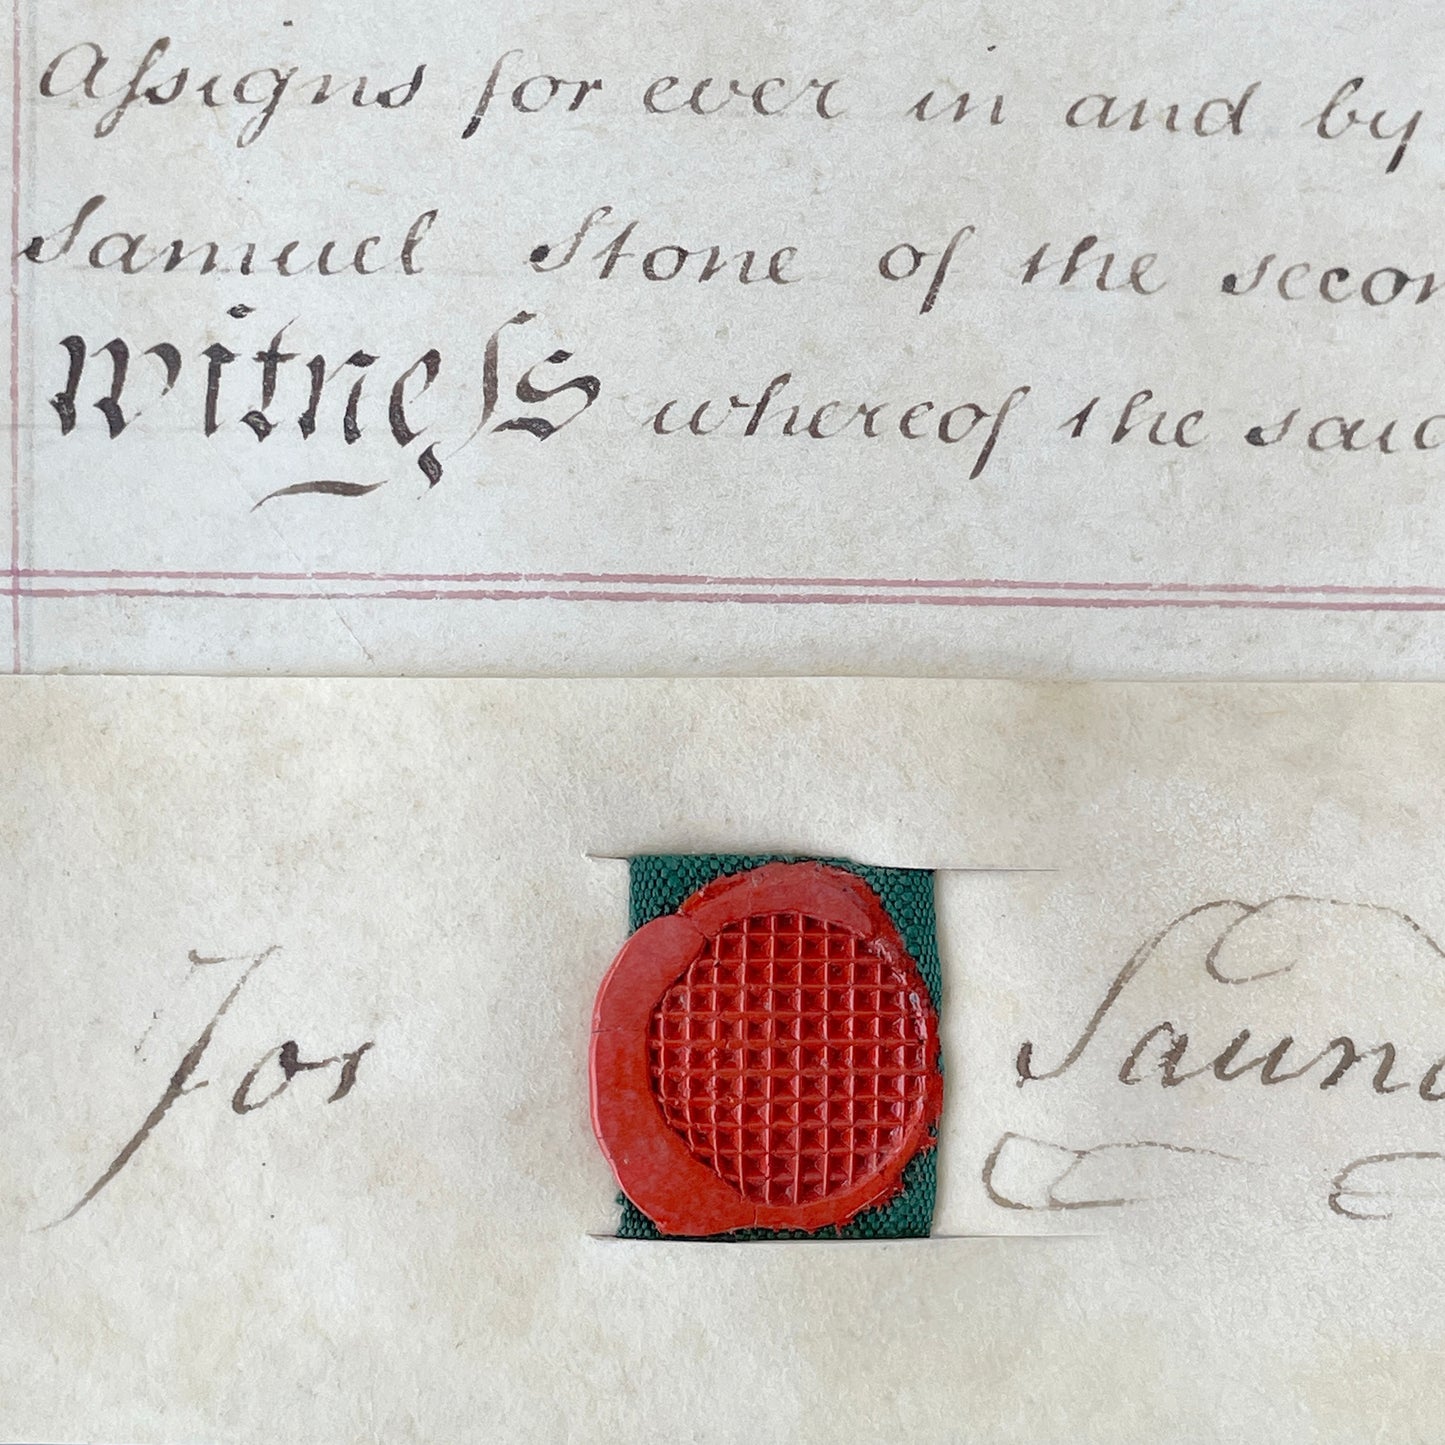 Aſsigns for ever in and by
Samuel Stone of the secon
Witneſs whereof the said
Jos Saund